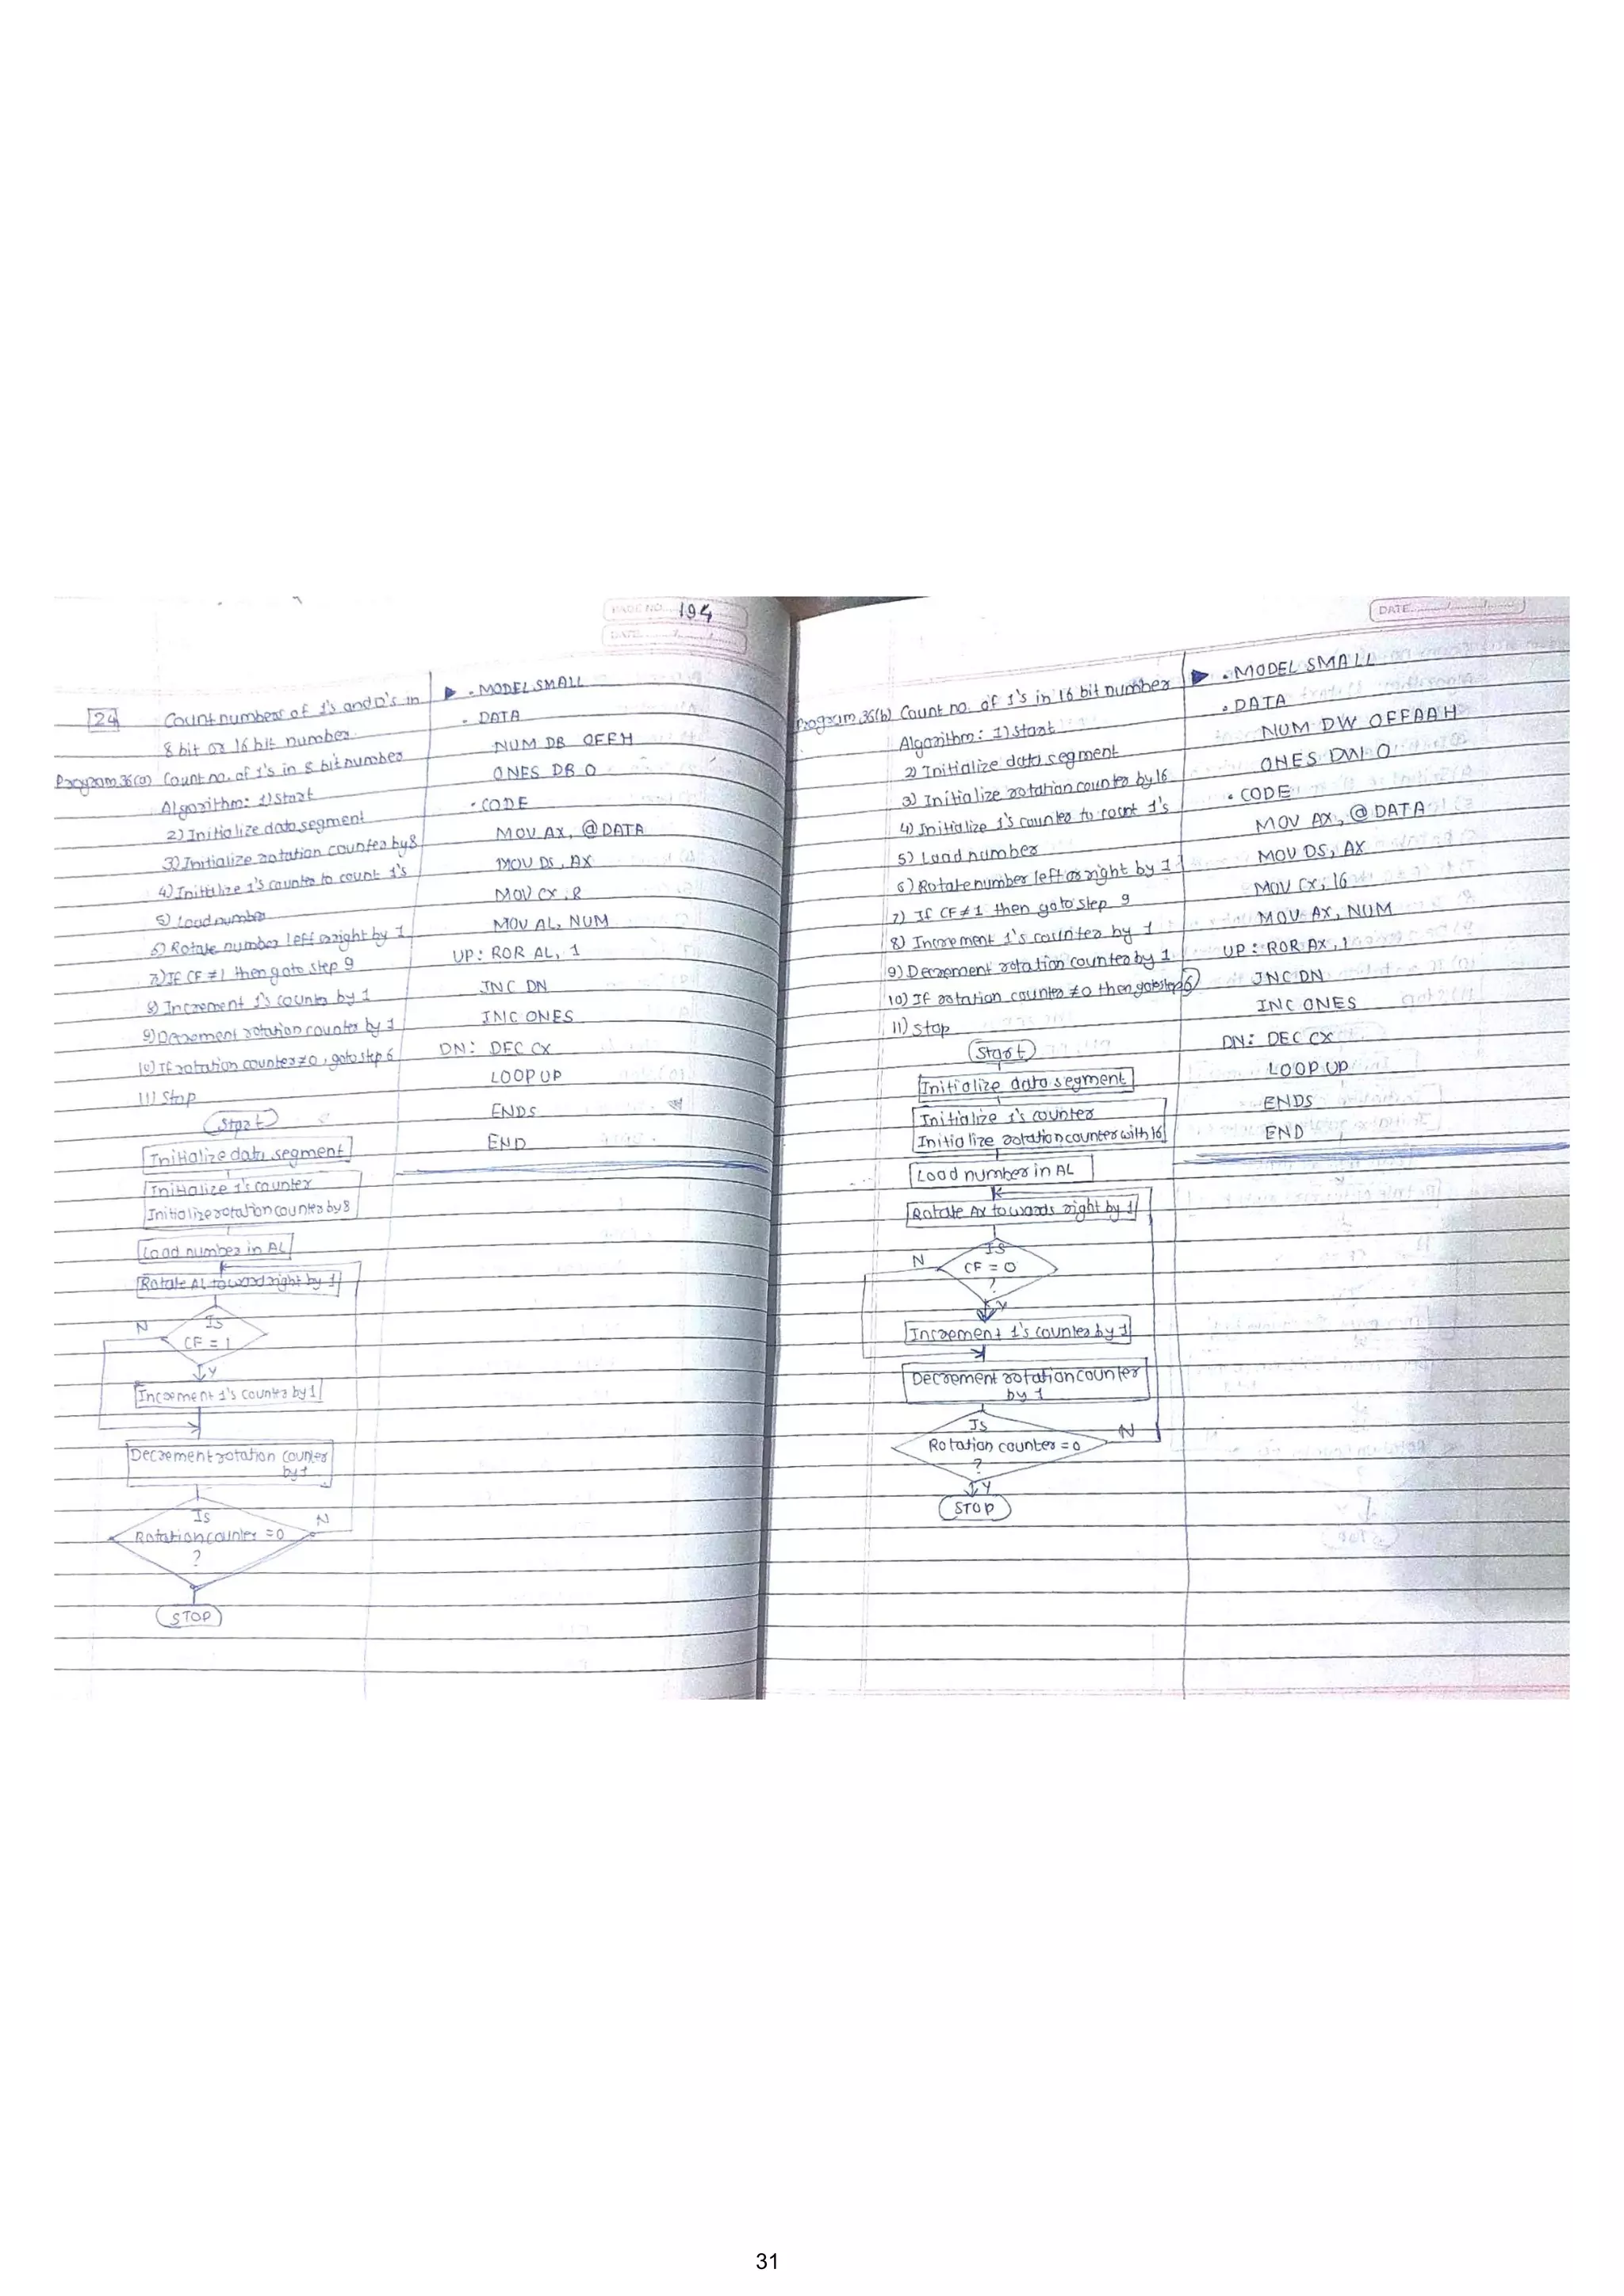 PAGE NO. 194
DATE
24 Count numbers of 1's and 0's in
8 bit or 16 bit number
Program 36(a) Count no. of 1's in 8 bit number
Algorithm: 1) Start
2) Initialize data segment
3) Initialize rotation counter by 8
4) Initialize 1's counter to count 1's
5) Load number
6) Rotate number left or right by 1
7) If CF ≠ 1 then goto step 9
8) Increment 1's counter by 1
9) Decrement rotation counter by 1
10) If rotation counter ≠ 0, goto step 6
11) Stop
Start
Initialize data segment
Initialize 1's counter
Initialize rotation counter by 8
Load number in AL
Rotate AL toward right by 1
Is
CF = 1
N
Y
Increment 1's counter by 1
Decrement rotation counter
by 1
Is
Rotation counter = 0
?
N
STOP
.MODEL SMALL
.DATA
NUM DB 0FFH
ONES DB 0
.CODE
MOV AX, @DATA
MOV DS, AX
MOV CX, 8
MOV AL, NUM
UP: ROR AL, 1
JNC DN
INC ONES
DN: DEC CX
LOOP UP
ENDS
END
DATE
Program 36(b) Count no. of 1's in 16 bit number
Algorithm: 1) Start
2) Initialize data segment
3) Initialize rotation counter by 16
4) Initialize 1's counter to count 1's
5) Load number
6) Rotate number left or right by 1
7) If CF ≠ 1 then goto step 9
8) Increment 1's counter by 1
9) Decrement rotation counter by 1
10) If rotation counter ≠ 0 then goto step 6
11) Stop
Start
Initialize data segment
Initialize 1's counter
Initialize rotation counter with 16
Load number in AL
Rotate AX towards right by 1
Is
CF = 0
?
N
Y
Increment 1's counter by 1
Decrement rotation counter
by 1
Is
Rotation counter = 0
?
N
Y
STOP
.MODEL SMALL
.DATA
NUM DW 0FFAAH
ONES DW 0
.CODE
MOV AX, @DATA
MOV DS, AX
MOV CX, 16
MOV AX, NUM
UP: ROR AX, 1
JNC DN
INC ONES
DN: DEC CX
LOOP UP
ENDS
END
31